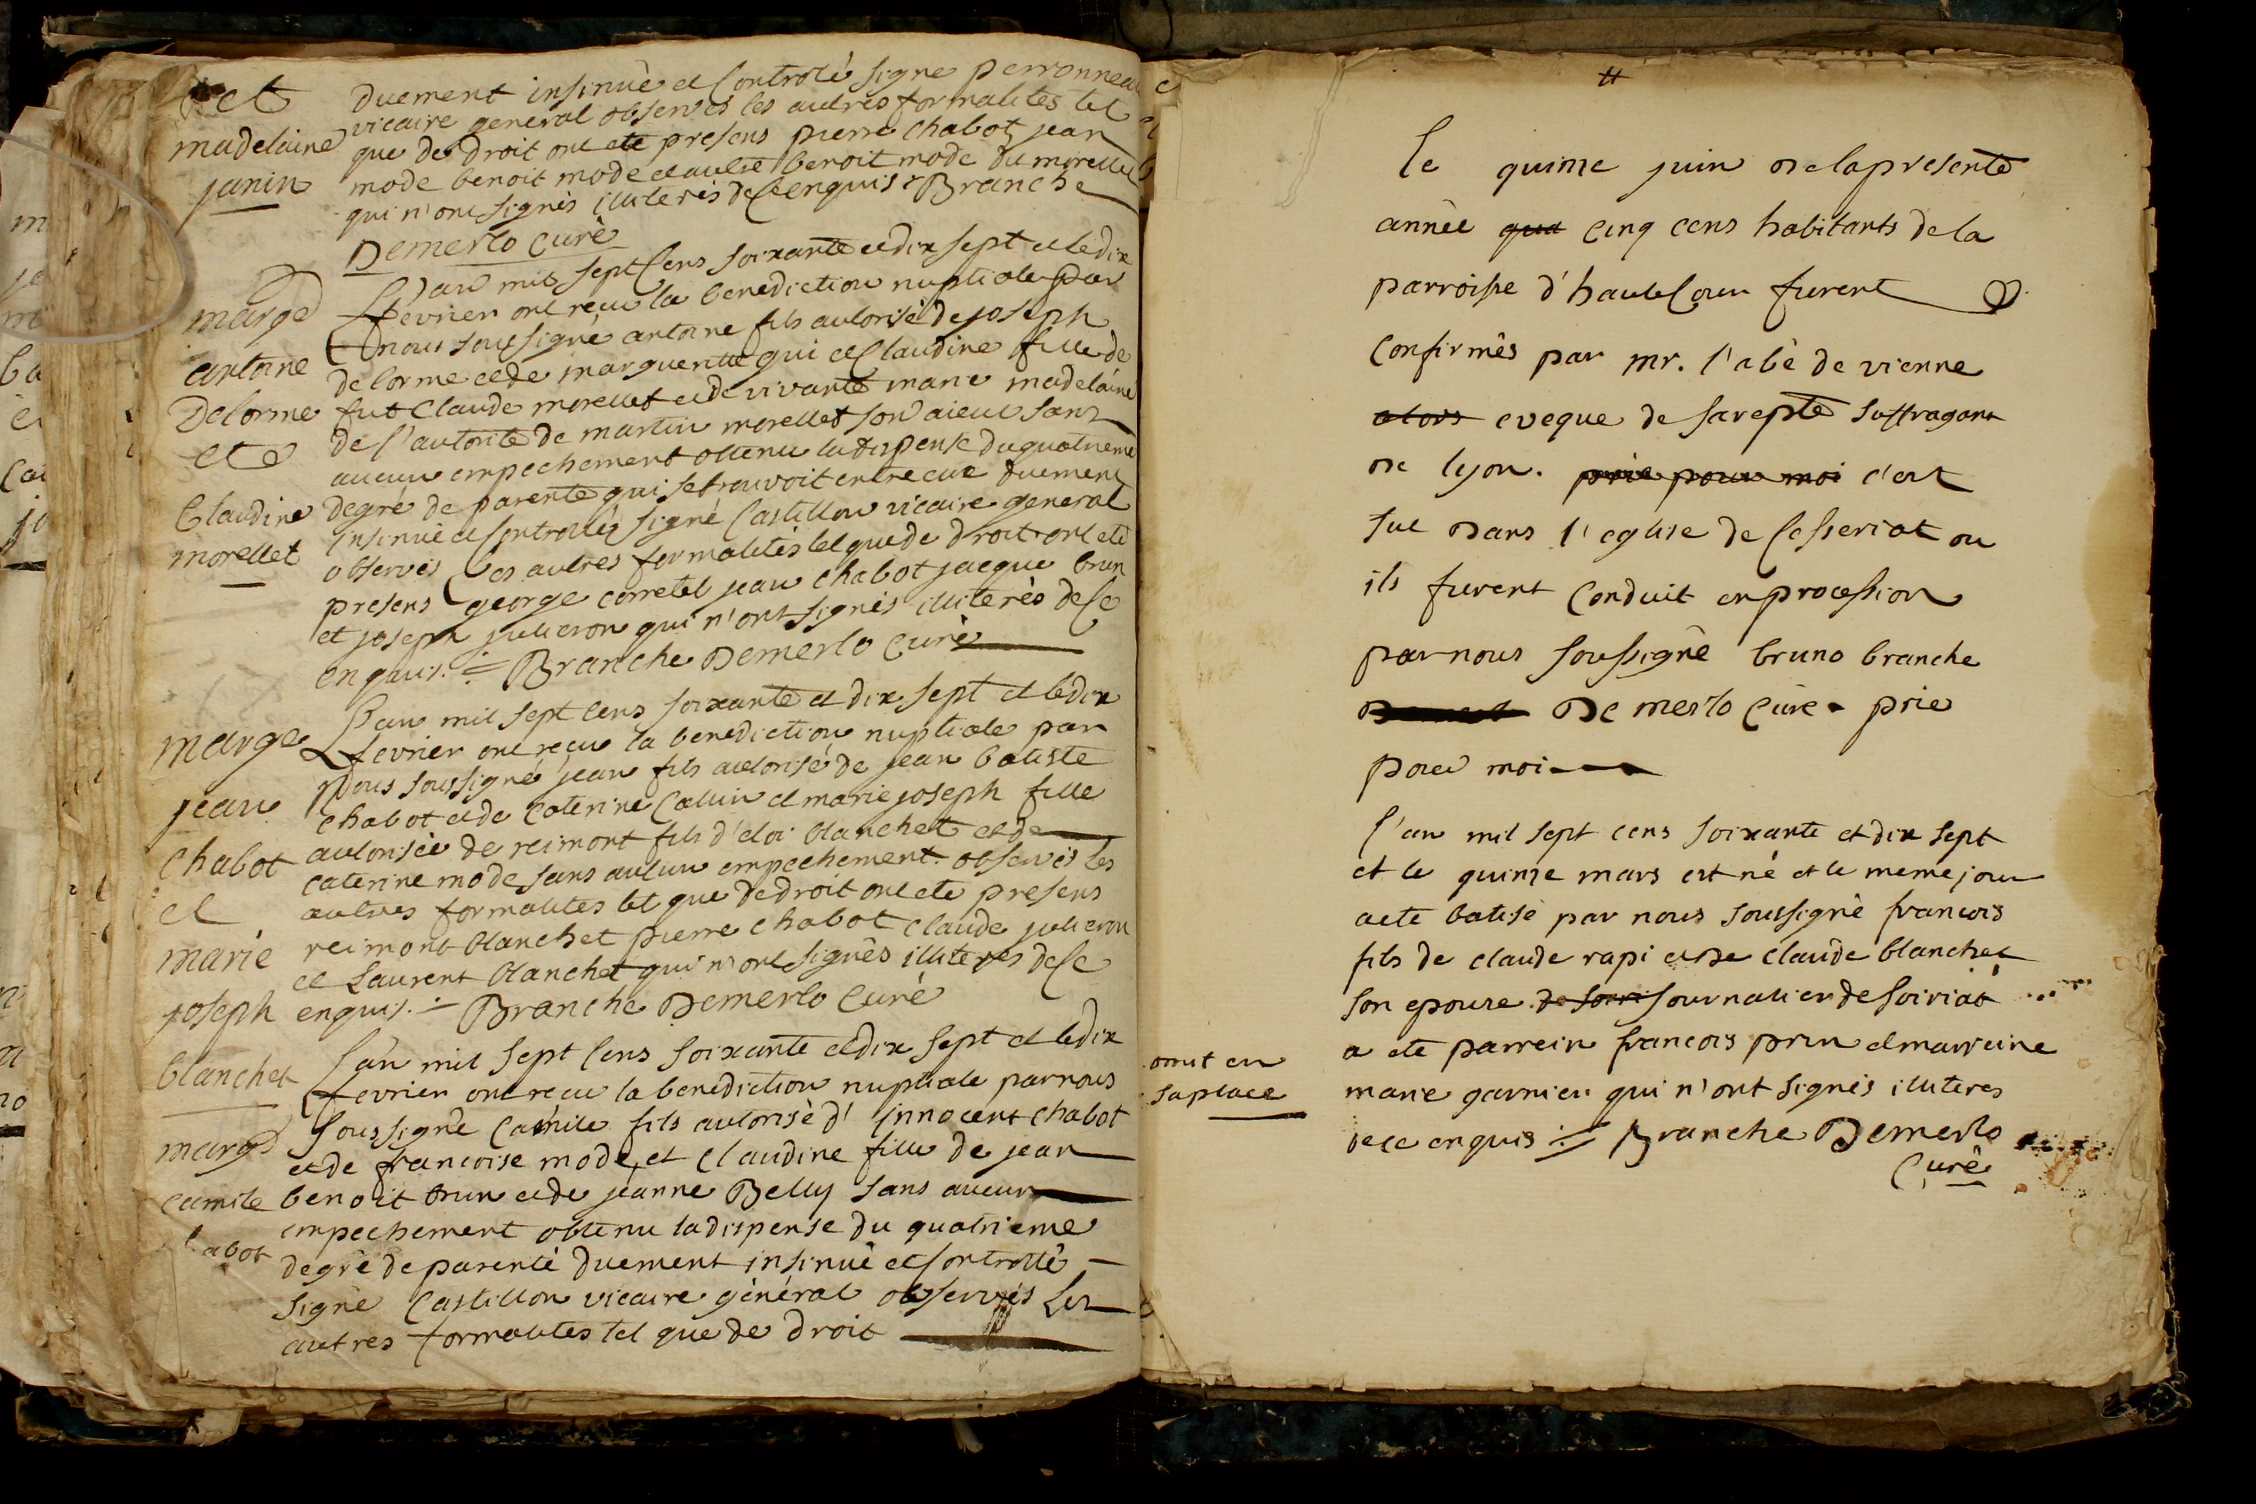 et
madelaine
janin
duement insinué et Controlé signe perronneau
vicaire general observés les autres formalités tel
que de droit ont ete presens pierre chabot jean
mode benoit mode et autre benoit mode du morellet
qui n'ont signés illiterés de ce enquis Branche
Demerlo curé
mariage
antoine
Delorme
et
Claudine
morellet
L'an mil sept Cens soixante et dix sept et le dix
fevrier ont reçu la benediction nuptiale par
nous soussigné antoine fils autorisé de joseph
delorme et de marguerite gui et Claudine fille de
fut Claude morellet et de vivante marie madelaine
de l'autorité de martin morellet son aieul sans
aucun empechement obtenu la dispense du quatrieme
degré de parenté qui se trouvoit entre eux duement
insinué et Controllé signé Castillon vicaire general
observés les autres formalités tel que de droit ont eté
presens george corretel jean chabot jacque brun
et joseph julieron qui n'ont signés illiterés de ce
enquis :=Branche Demerlo Curé
mariage
jean
Chabot
et
marie
joseph
blanchet
L'an mil sept cens soixante et dix sept et le dix
fevrier ont reçu la benediction nuptiale par
Nous soussigné jean fils autorisé de jean batiste
chabot et de Caterine Callin et marie joseph fille
autorisée de reimont fils d'eloi blanchet et de
caterine mode sans aucun empechement observés les
autres formalites tel que de droit ont ete presens
reimont blanchet pierre chabot claude julieron
et Laurent blanchet qui n'ont signés illiterés de ce
enquis :=Branche Demerlo Curé
mariage
camile
chabot
L'an mil sept Cens soixante et dix sept et le dix
fevrier ont recu la benediction nuptiale par nous
Soussigné Camile fils autorisé d'innocent chabot
et de francoise mode et Claudine fille de jean
benoit brun et de jeanne Belly sans aucun
empechement obtenu la dispense du quatrieme
degré de parenté duement insinué et Controllé
signé Castillon vicaire général observés les
autres formalites tel que de droit
Le quinze juin de la presente
année qua cinq cens habitants de la
parroisse d'hauteCour furent
Confirmés par mr. l'abé de vienne
alors eveque de sarepte suffragant
de lyon. prie pour moi c'est
fut dans l'eglise de Cesseriat ou
ils furent Conduit en procession
par nous soussigné bruno branche
De merlo Curé prie
pour moi
L'an mil sept cens soixante et dix sept
et le quinze mars est né et le meme jour
a ete batisé par nous soussigné francois
fils de claude rapi et de claude blanchet
son epouse de soiri journalier de soiriat
a ete parrein francois prin et marreine
marie garnier qui n'ont signés illiteres
de ce enquis := Branche Demerlo
Curé
omit en
sa place